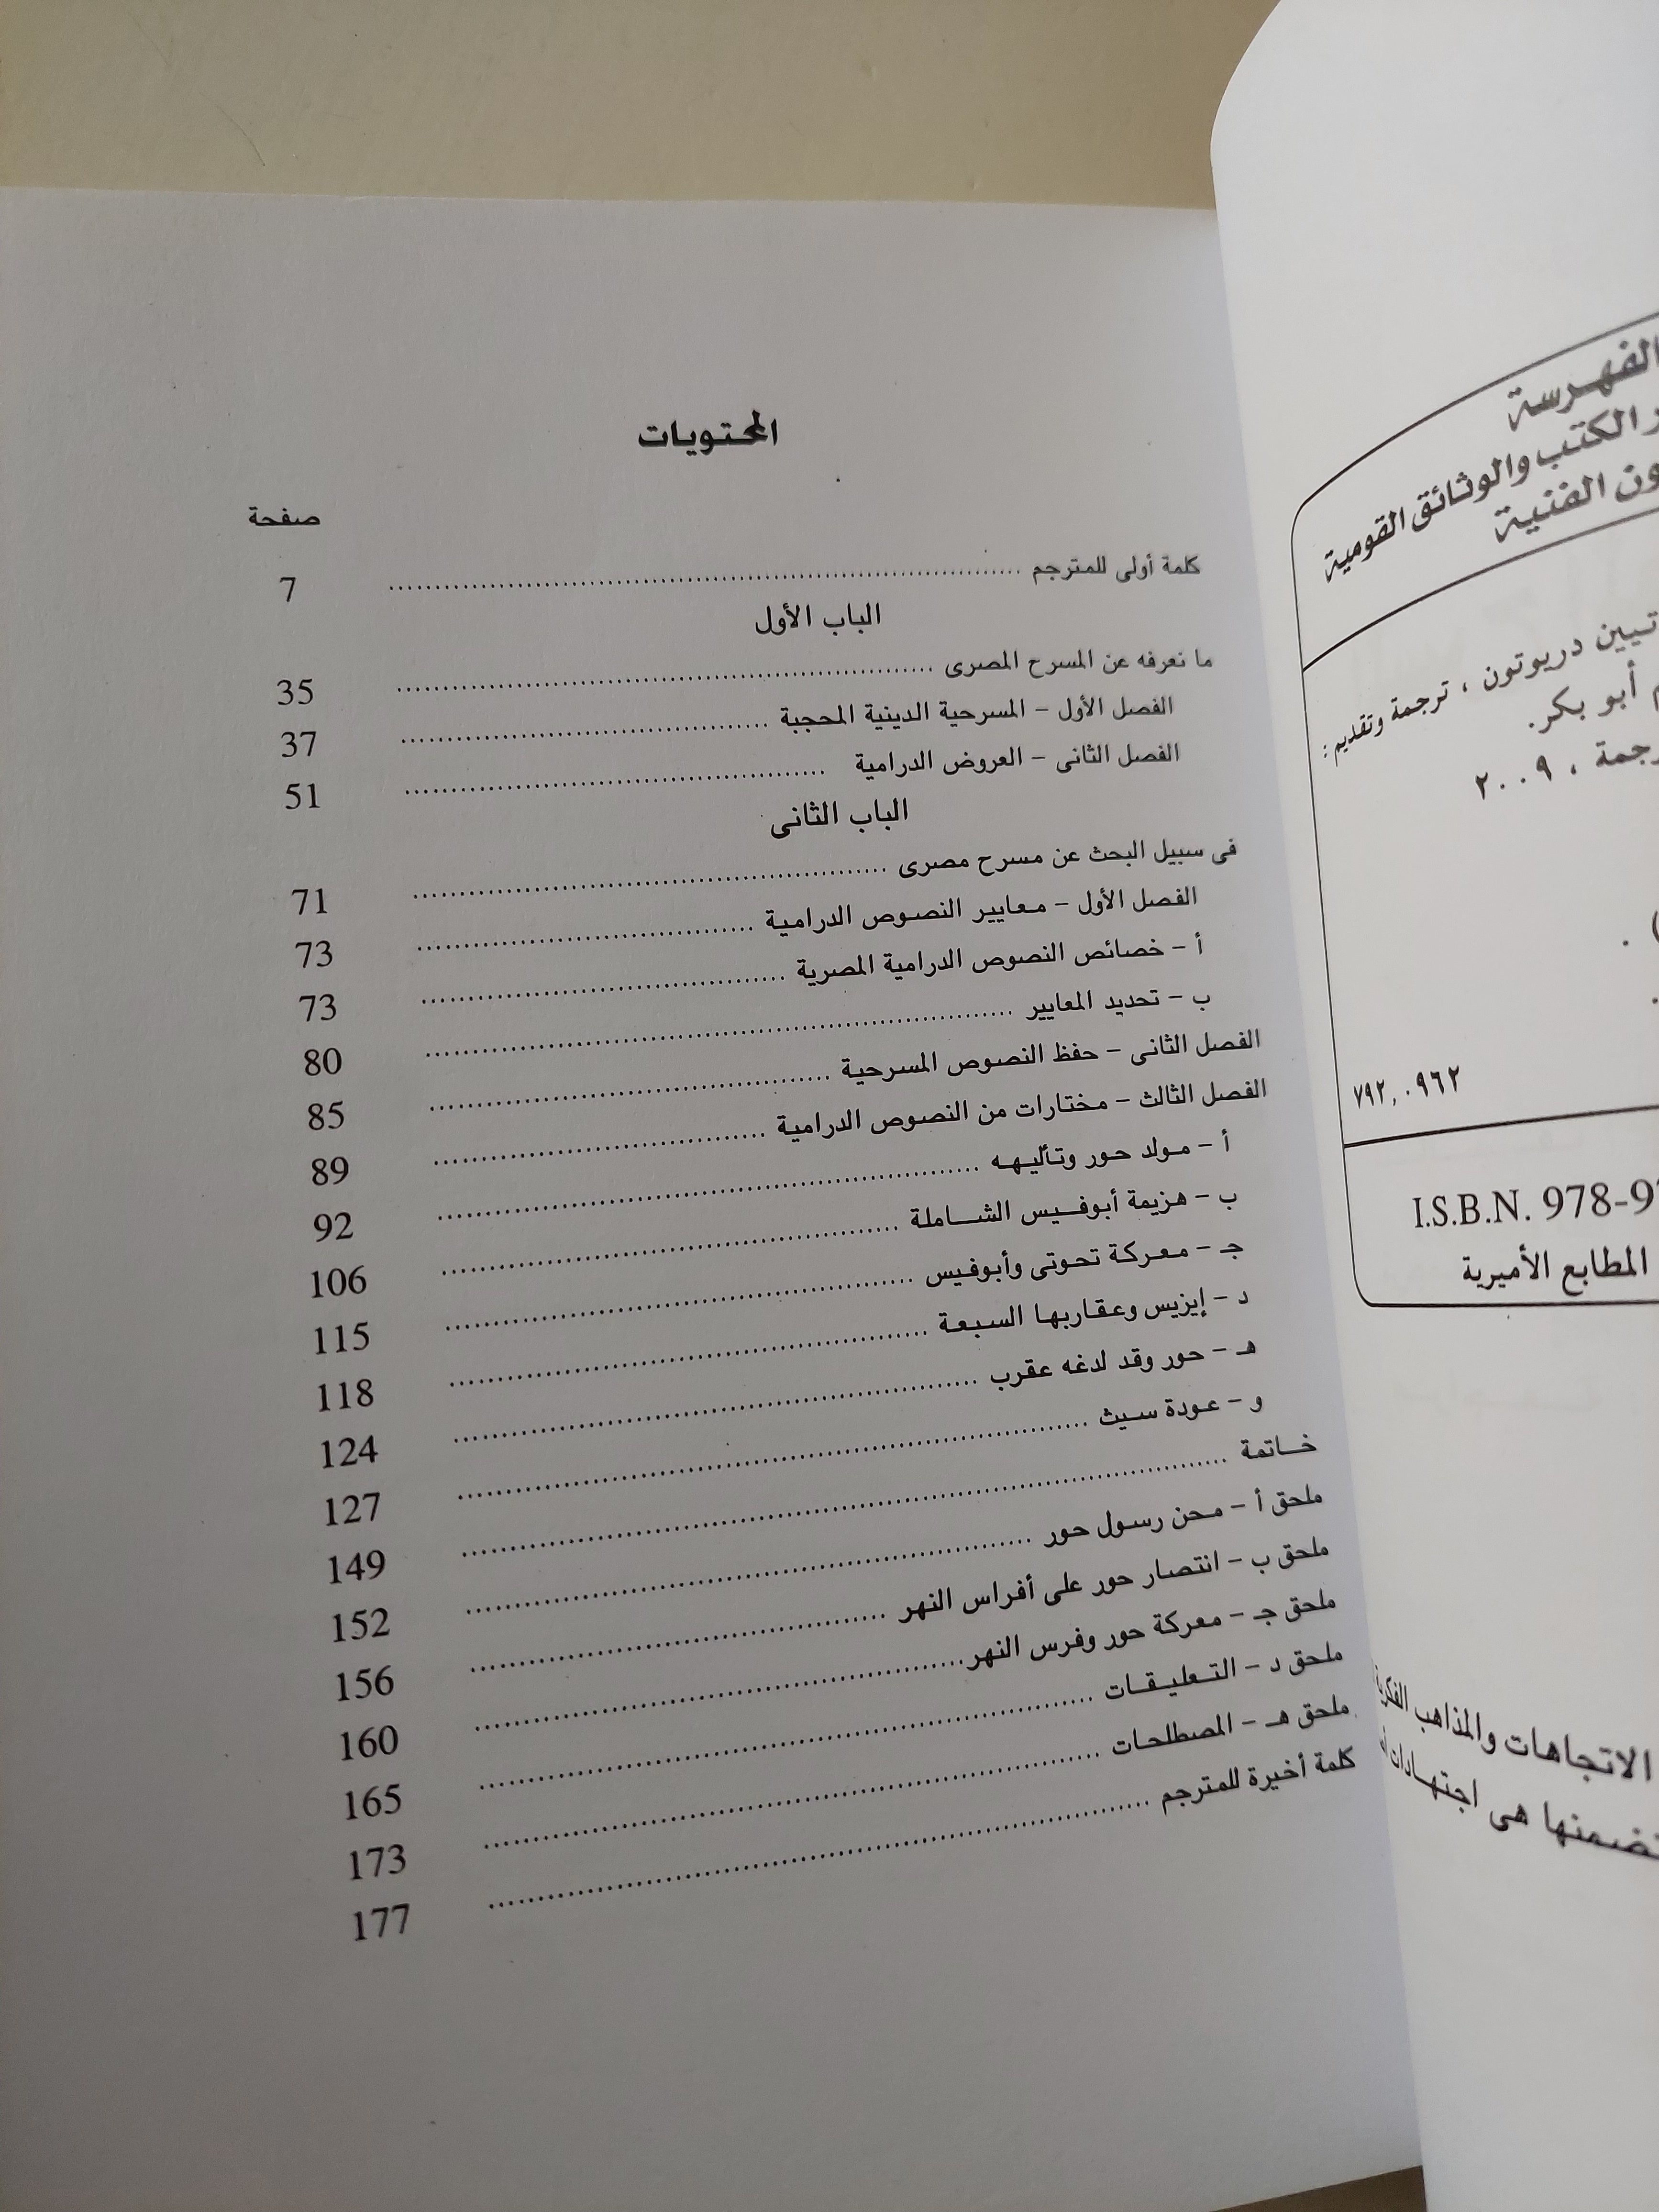 الفهرسة
الكتب والوثائق القومية
الفنية
دريوتون ، ترجمة وتقديم :
أبو بكر.
، ٢٠٠٩
٧٩٢,٠٩٦٢
I.S.B.N. 978-9
المطابع الأميرية
الاتجاهات والمذاهب
هى اجتهادات
المحتويات
صفحة
كلمة أولى للمترجم 7
الباب الأول
ما نعرفه عن المسرح المصرى 35
الفصل الأول - المسرحية الدينية المحجبة 37
الفصل الثانى - العروض الدرامية 51
الباب الثانى
فى سبيل البحث عن مسرح مصرى 71
الفصل الأول - معايير النصوص الدرامية 73
أ - خصائص النصوص الدرامية المصرية 73
ب - تحديد المعايير 80
الفصل الثانى - حفظ النصوص المسرحية 85
الفصل الثالث - مختارات من النصوص الدرامية 89
أ - مولد حور وتأليهه 92
ب - هزيمة أبوفيس الشاملة 106
جـ - معركة تحوتى وأبوفيس 115
د - إيزيس وعقاربها السبعة 118
هـ - حور وقد لدغه عقرب 124
و - عودة سيث 127
خاتمة 149
ملحق أ - محن رسول حور 152
ملحق ب - انتصار حور على أفراس النهر 156
ملحق جـ - معركة حور وفرس النهر 160
ملحق د - التعليقات 165
ملحق هـ - المصطلحات 173
كلمة أخيرة للمترجم 177